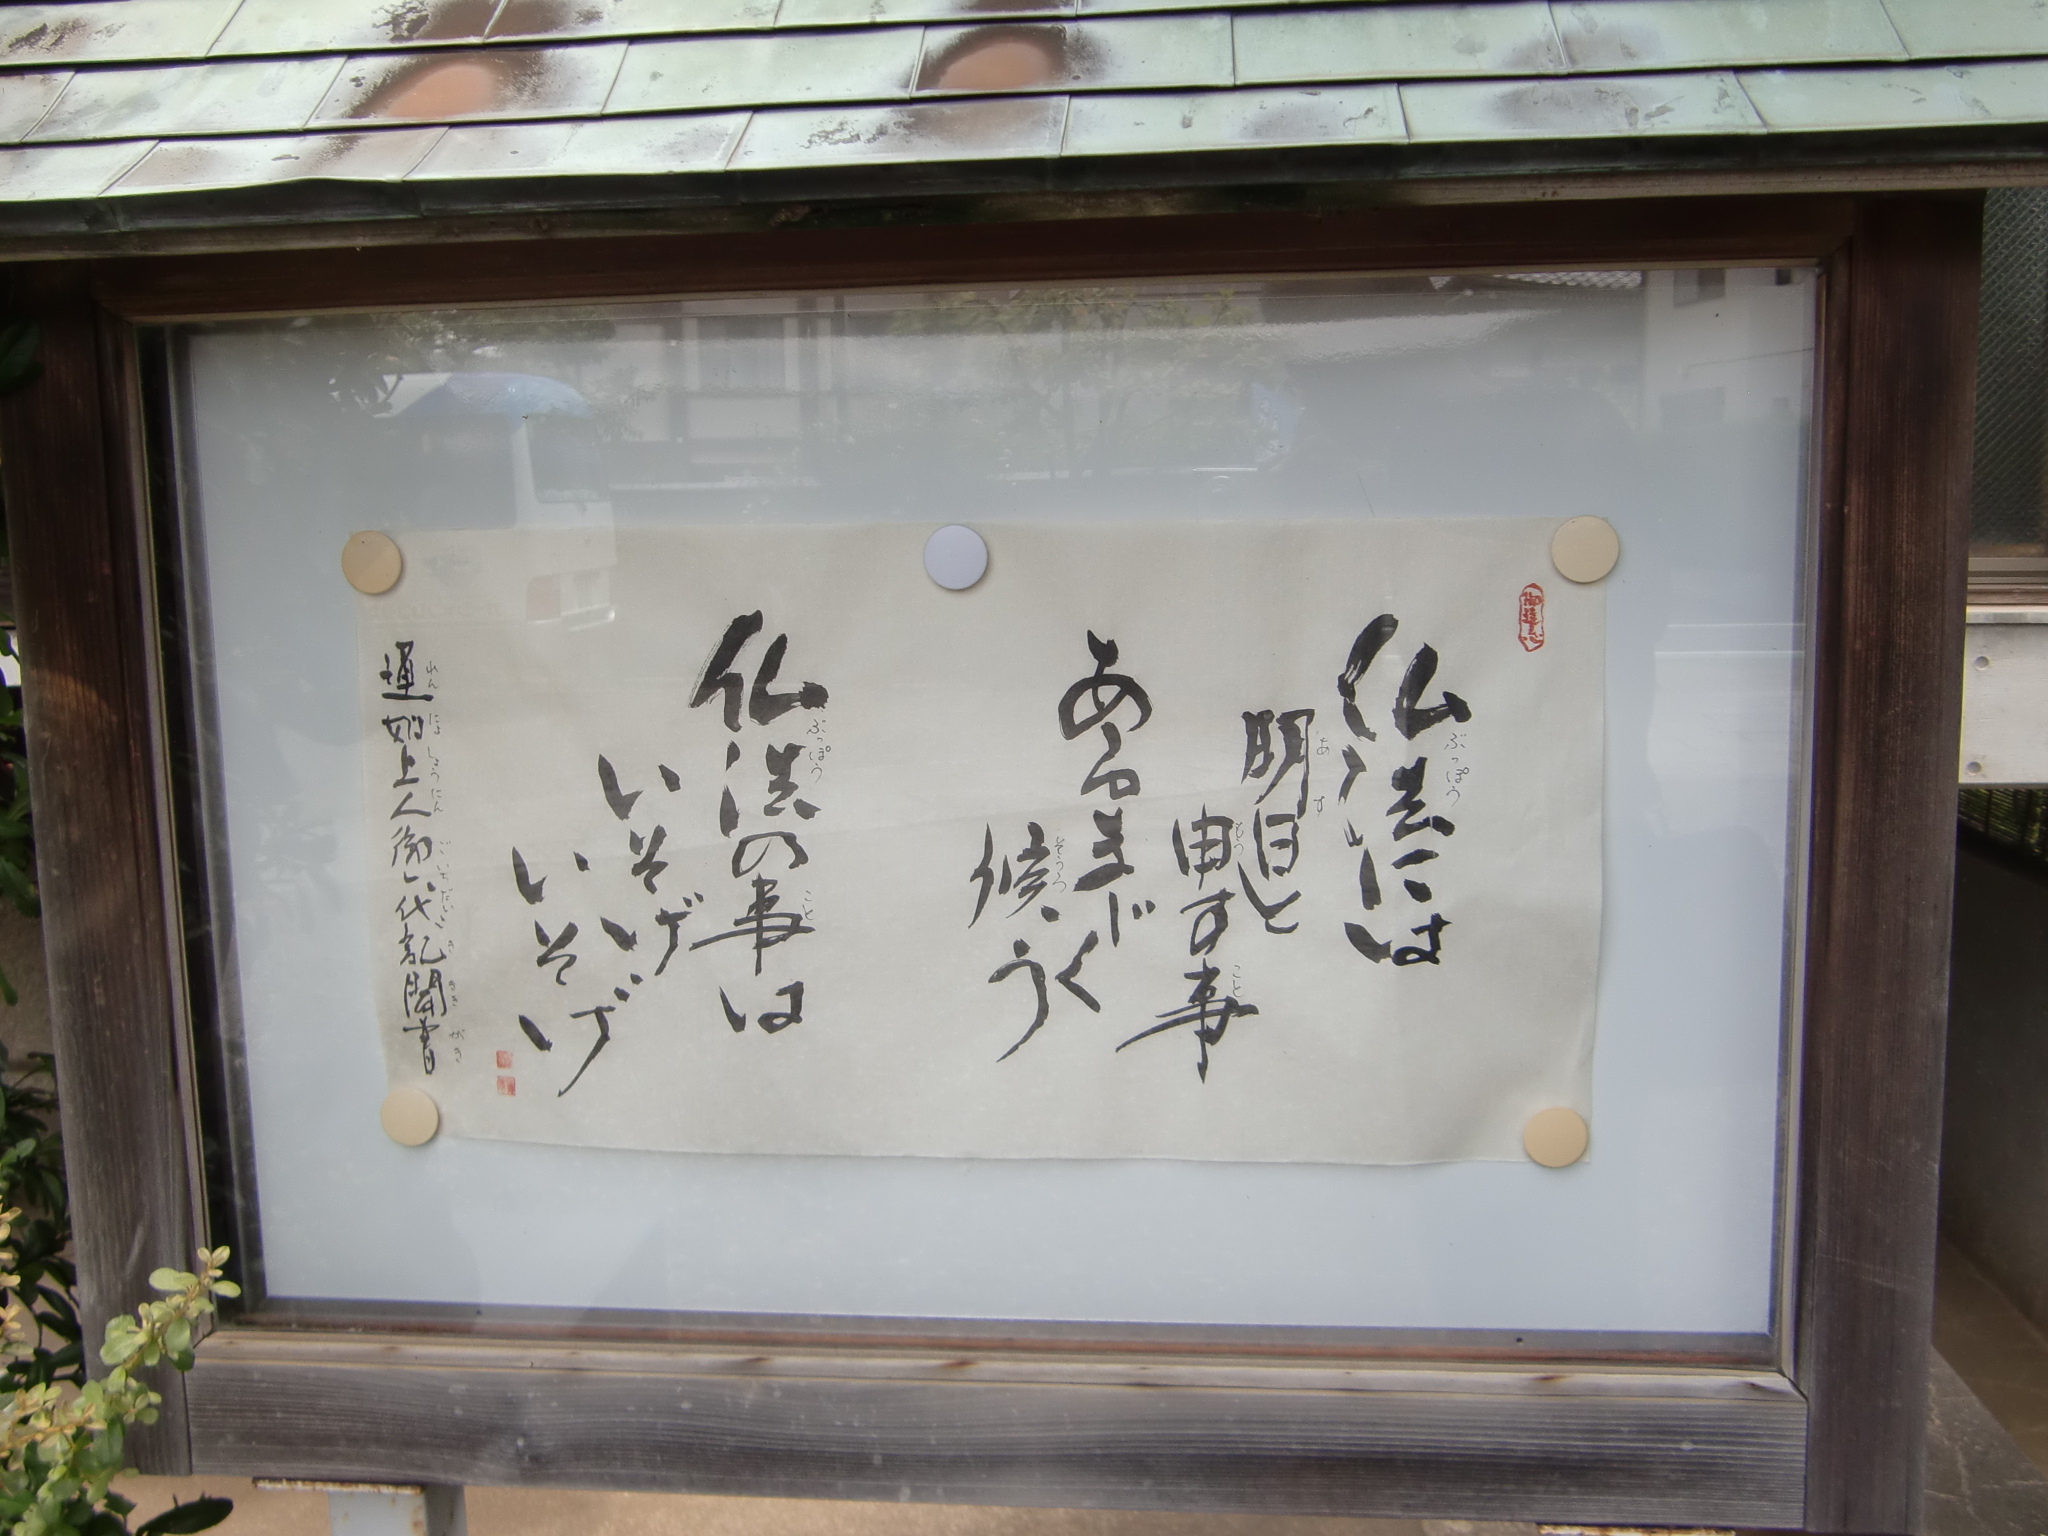 仏法には
明日と
申す事
あるまじく
候、う
仏法の事は
いそげ
いそげ
蓮如上人御一代記聞書